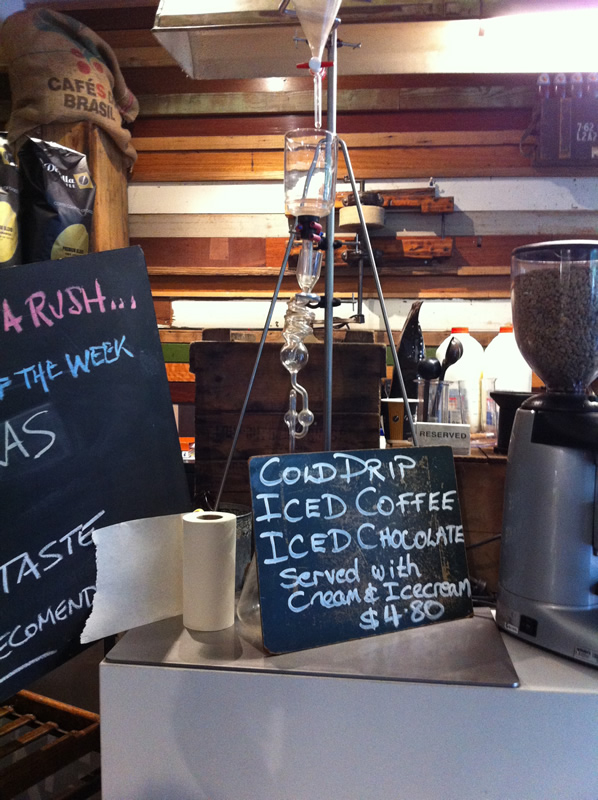 CAFÉS
BRASIL
A RUSH...
OF THE WEEK
AS
TASTE
ECOMEND
RESERVED
COLD DRIP
ICED COFFEE
ICED CHOCOLATE
Served with
Cream & Icecream
$4.80